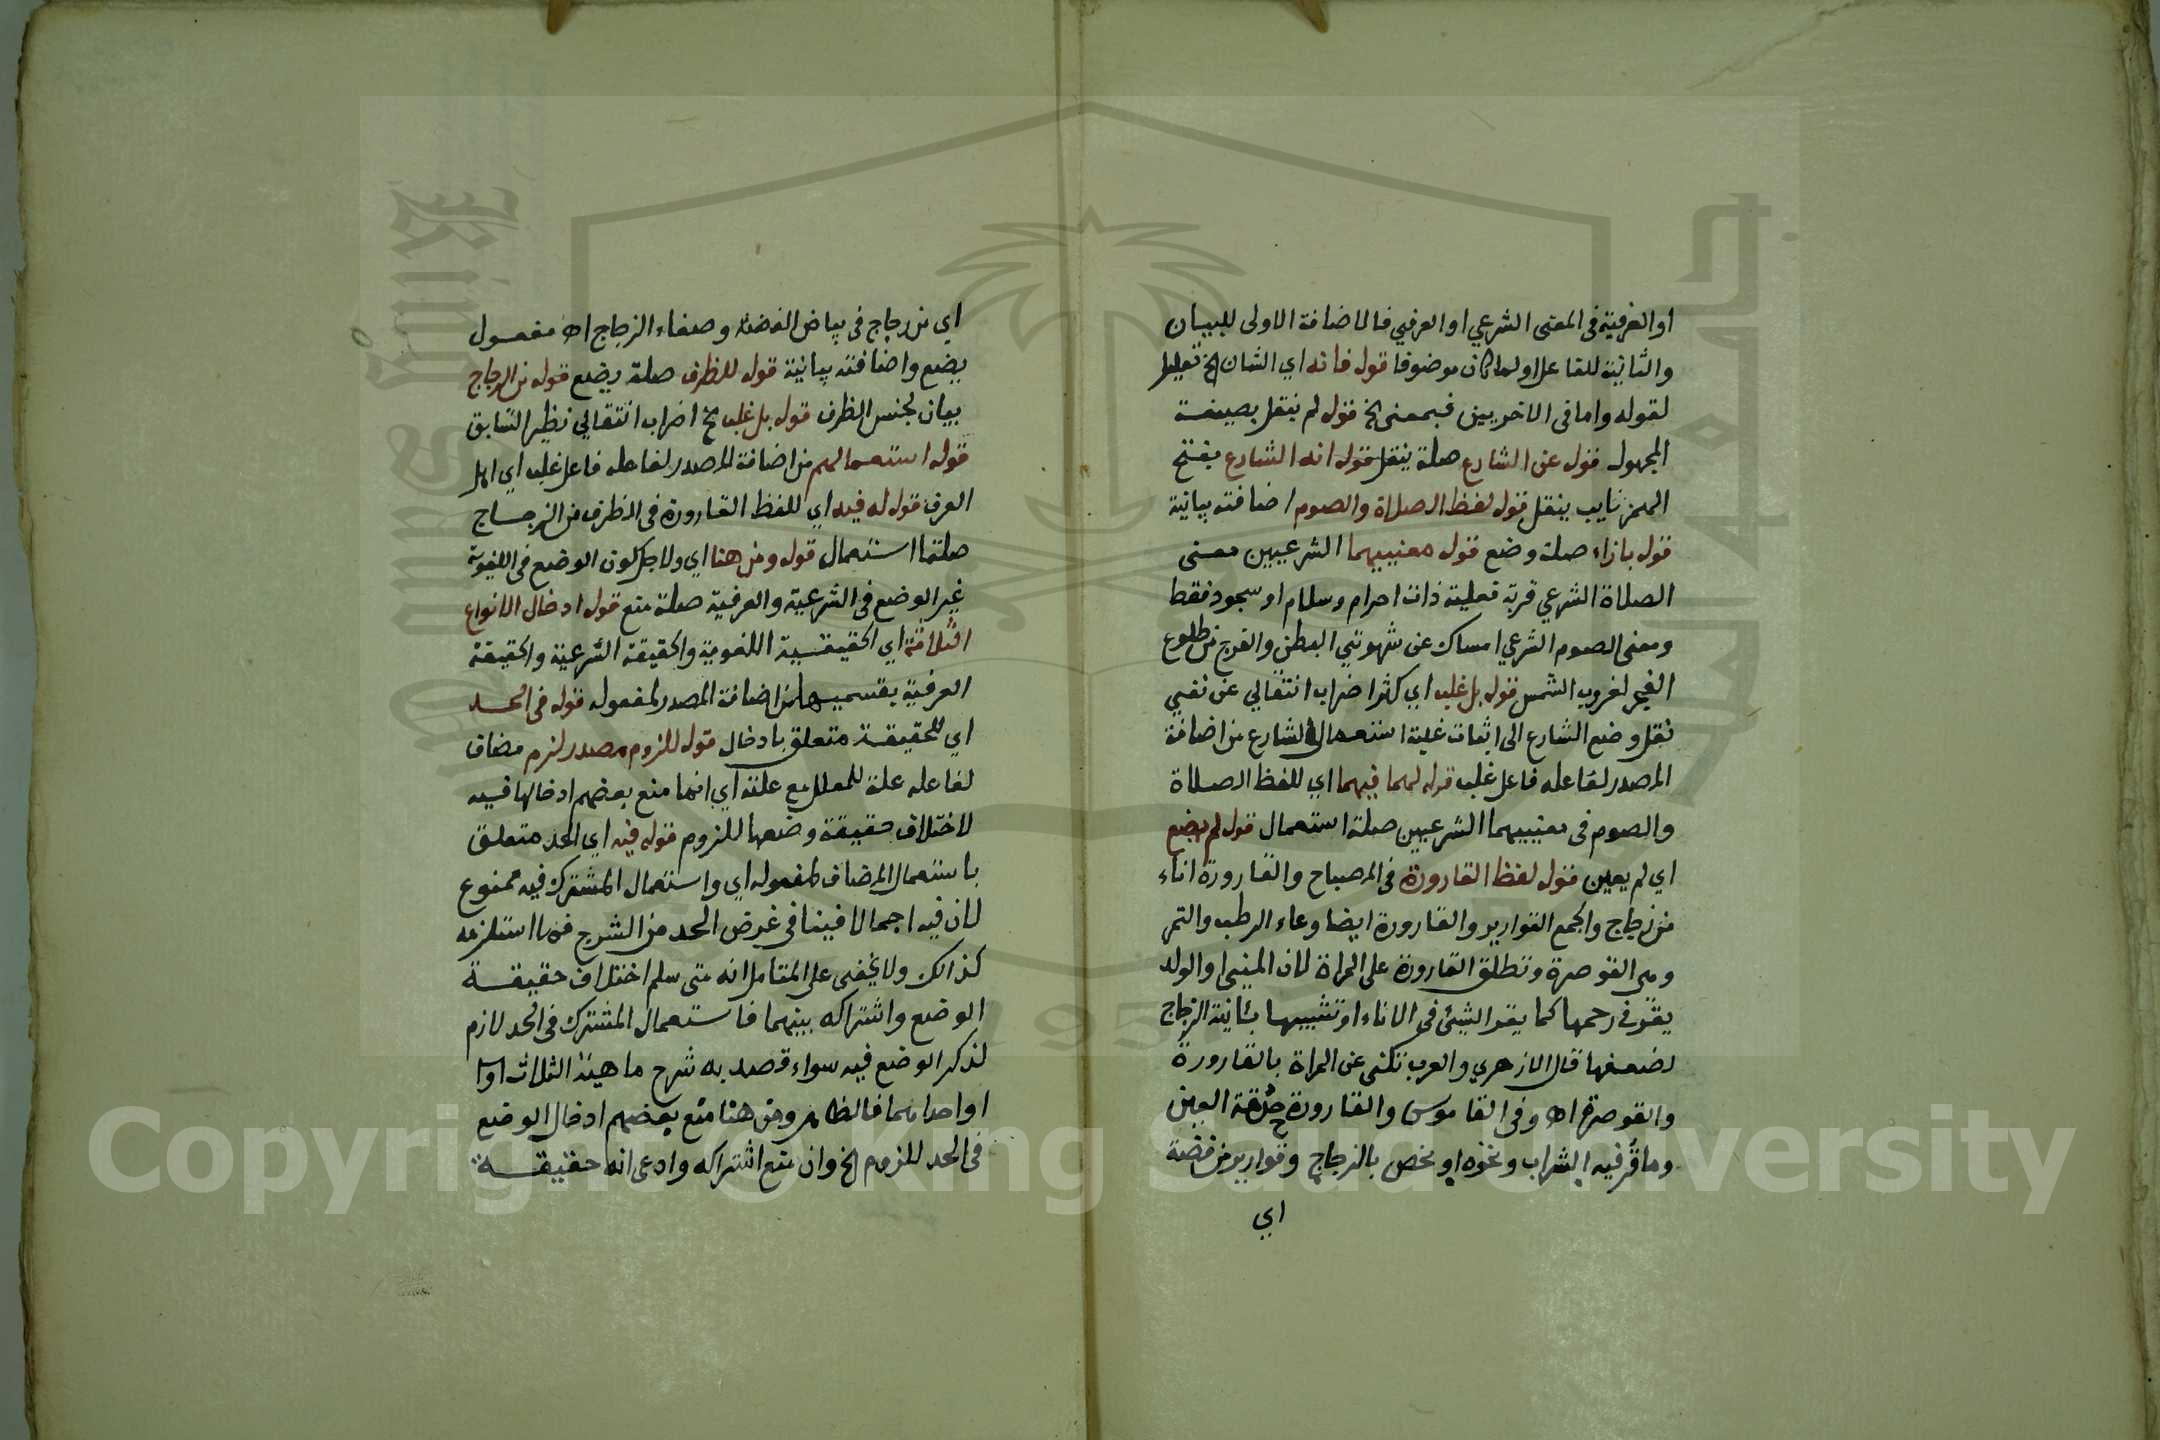 او العرفية في المعنى الشرعي او العرفي فالاضافة الاولى للبيان
والثانية للفاعل او لما كان موضوعا قوله فانه اي الشان الخ تعليل
لقوله واما في الاخريين فبمعنى الخ قوله لم ينقل بصيغة
المجهول قوله عن الشارع صلة ينقل قوله انه الشارع بفتح
الهمز نايب ينقل قوله لفظ الصلاة والصوم اضافته بيانية
قوله بازاء صلة وضع قوله معنييهما الشرعيين معنى
الصلاة الشرعي قربة فعلية ذات احرام وسلام او سجود فقط
ومعنى الصوم الشرعي امساك عن شهوتي البطن والفرج من طلوع
الفجر لغروب الشمس قوله بل غلب اي كثر اضراب انتقالي عن نفي
نقل وضع الشارع الى اثبات غلبة استعمال الشارع من اضافة
المصدر لفاعله فاعل غلب قوله لهما فيهما اي للفظ الصلاة
والصوم في معنييهما الشرعيين صلة استعمال قوله لم يضع
اي لم يعين قوله لفظ القارورة في المصباح والقارورة اناء
من زجاج والجمع القوارير والقارورة ايضا وعاء الرطب والتمر
وهى القوصرة وتطلق القارورة على المراة لان المني او الولد
يقر في رحمها كما يقر الشيئ في الاناء او تشبيها بئانية الزجاج
لضعفها قال الازهري والعرب تكنى عن المراة بالقارورة
والقوصرة اه وفي القاموس والقارورة حدقة العين
وما قر فيه الشراب ونحوه او يخص بالزجاج وقوارير من فضة
اي
اي من زجاج في بياض الفضة وصفاء الزجاج اه مفعول
يضع واضافته بيانية قوله للظرف صلة يضع قوله من الزجاج
بيان لجنس الظرف قوله بل غلب الخ اضراب انتقالي نظير السابق
قوله استعمالهم من اضافة المصدر لفاعله فاعل غلب اي اهل
العرف قوله له فيه اي للفظ القارورة في الظرف من الزجاج
صلتا استعمال قوله ومن هنا اي ولاجل كون الوضع في اللغوية
غير الوضع في الشرعية والعرفية صلة منع قوله ادخال الانواع
الثلاثة اي الحقيقية اللغوية والحقيقة الشرعية والحقيقة
العرفية بقسميها من اضافة المصدر لمفعوله قوله في الحد
اي للحقيقة متعلق بادخال قوله للزوم مصدر لزم مضاف
لفاعله علة للمعلل مع علته اي انما منع بعضهم ادخالها فيه
لاختلاف حقيقة وضعها للزوم قوله فيه اي الحد متعلق
باستعمال المضاف لمفعوله اي واستعمال المشترك فيه ممنوع
لان فيه اجمالا فينافي غرض الحد من الشرح فما استلزمه
كذالك ولا يخفى على المتامل انه متى سلم اختلاف حقيقة
الوضع واشتراكه بينهما فاستعمال المشترك في الحد لازم
لذكر الوضع فيه سواء قصد به شرح ماهية الثلاث
او احدا منها فالظاهر ومن هنا منع بعضهم ادخال الوضع
في الحد للزوم الخ وان منع اشتراكه وادعى انه حقيقة
Copyright © King Saud University
King Saud University
1957